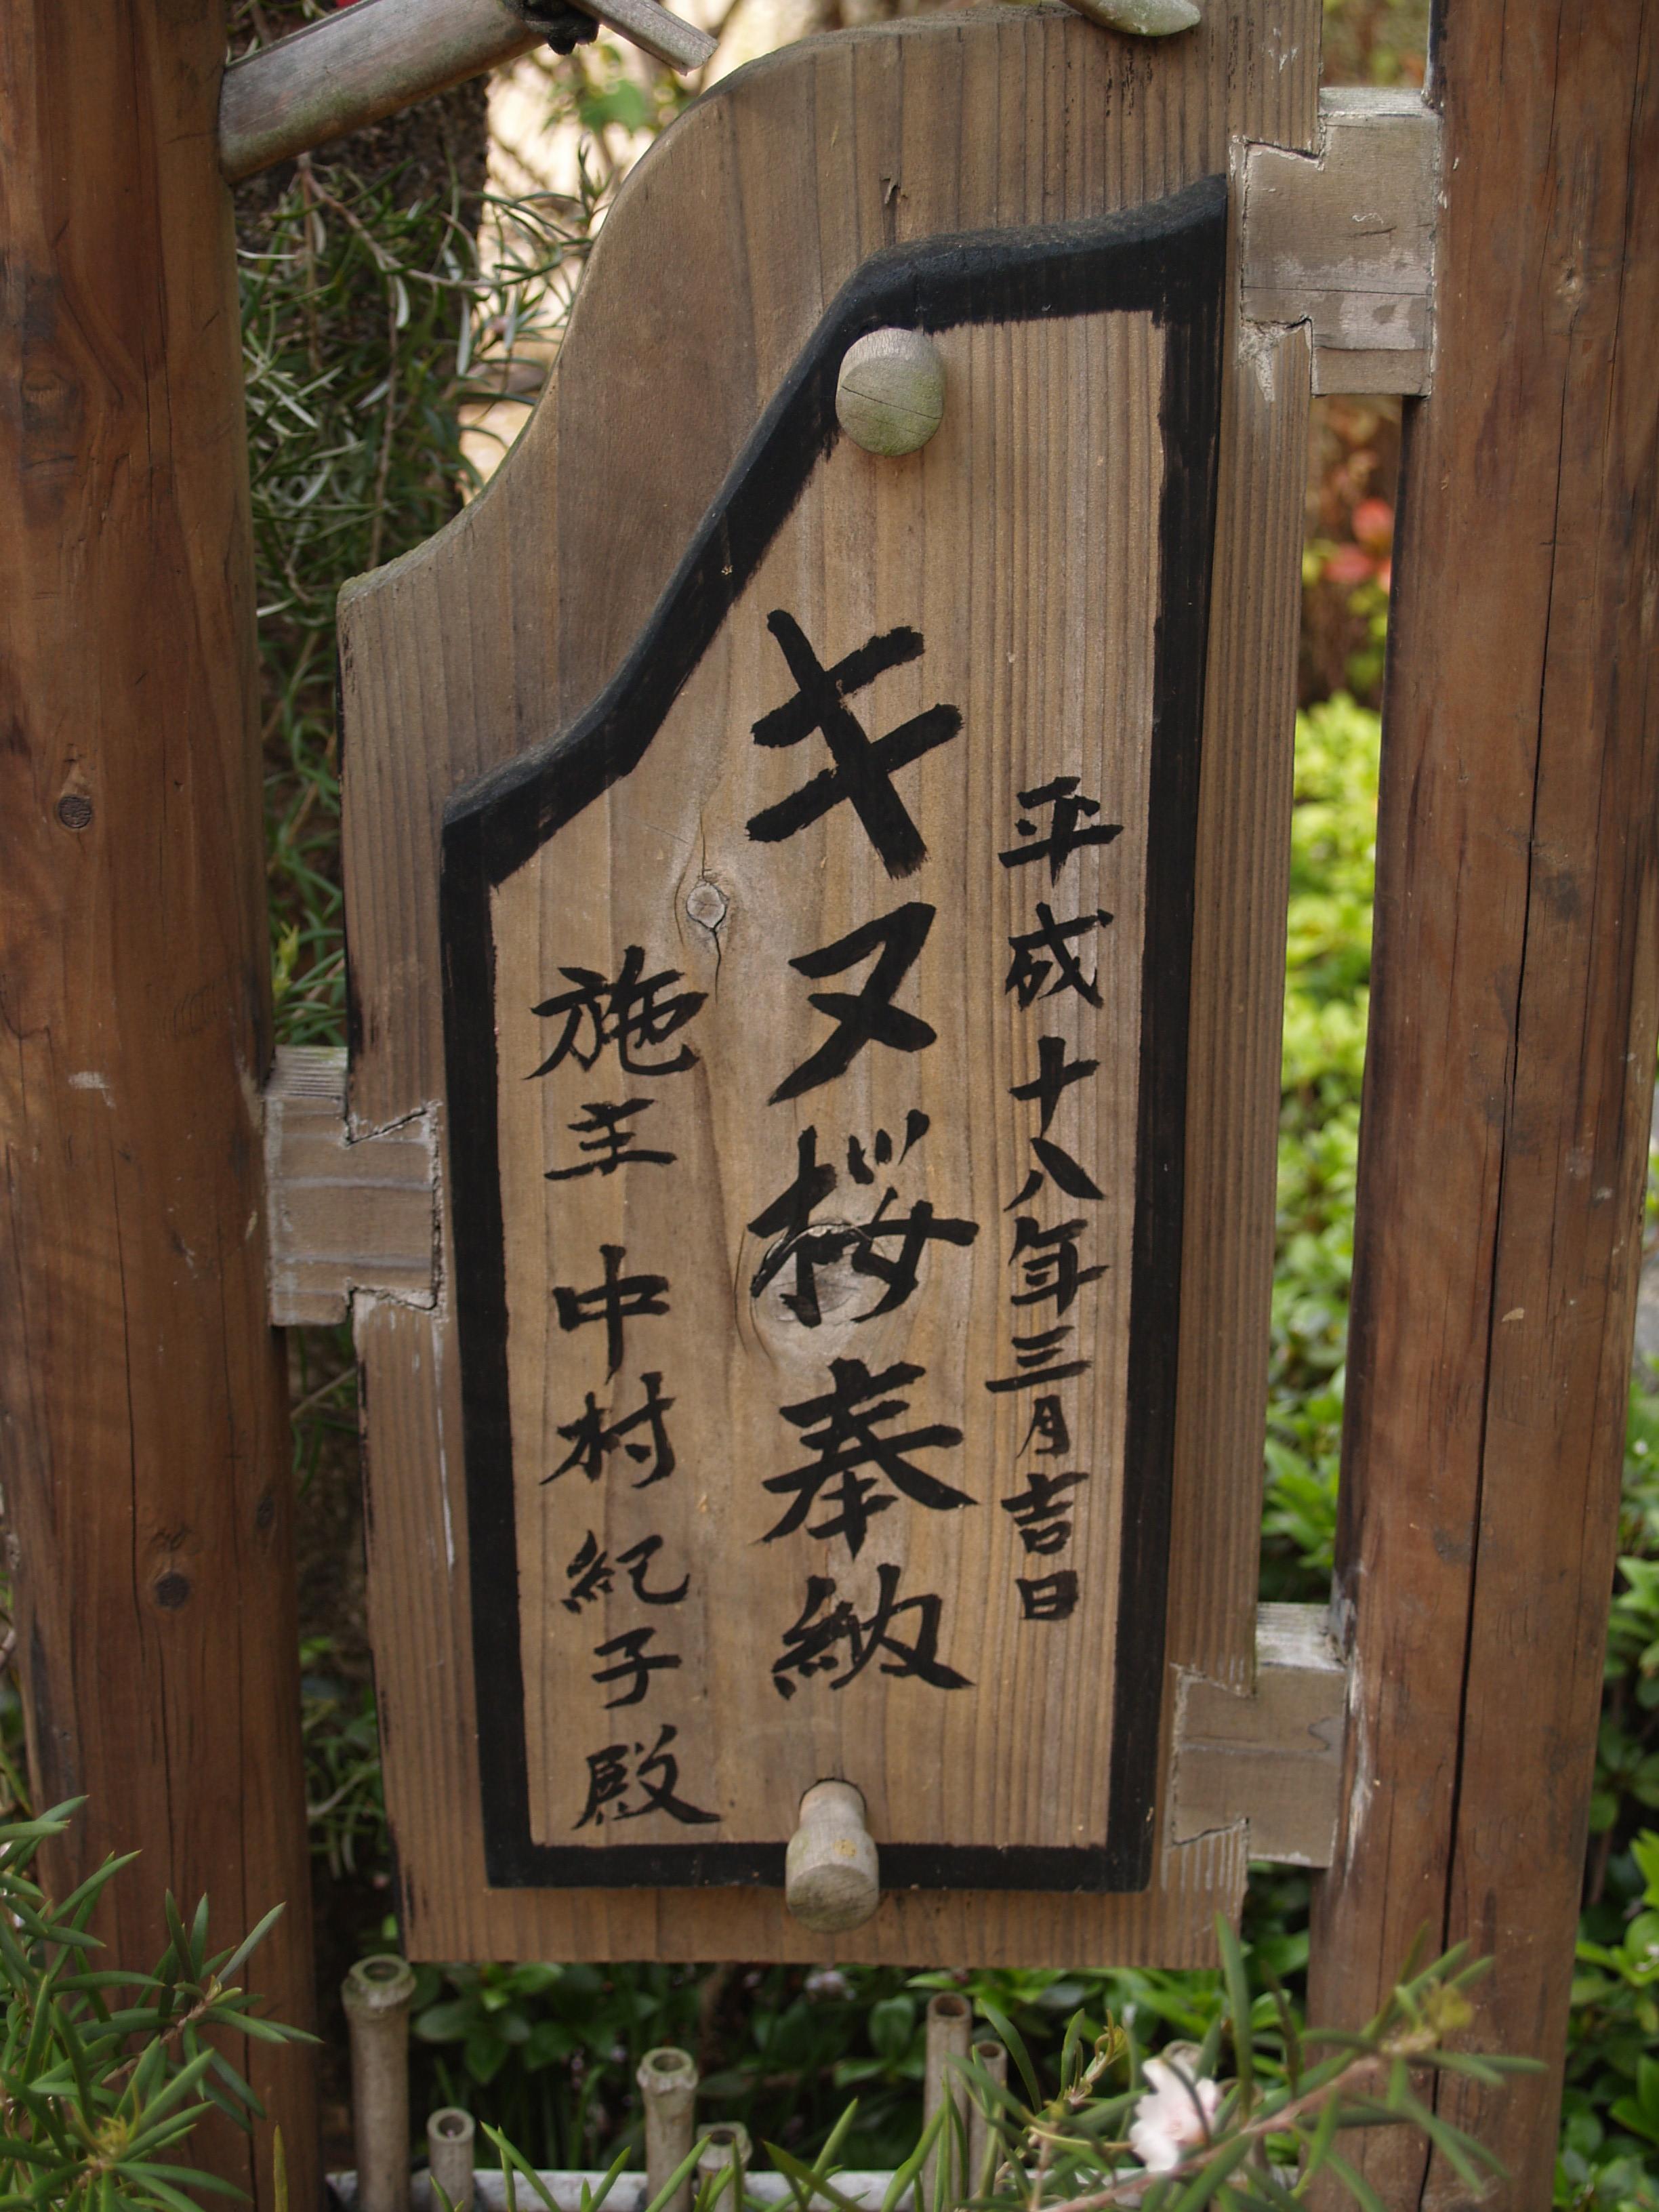 平成十八年三月吉日
キヌ桜奉納
施主 中村紀子殿